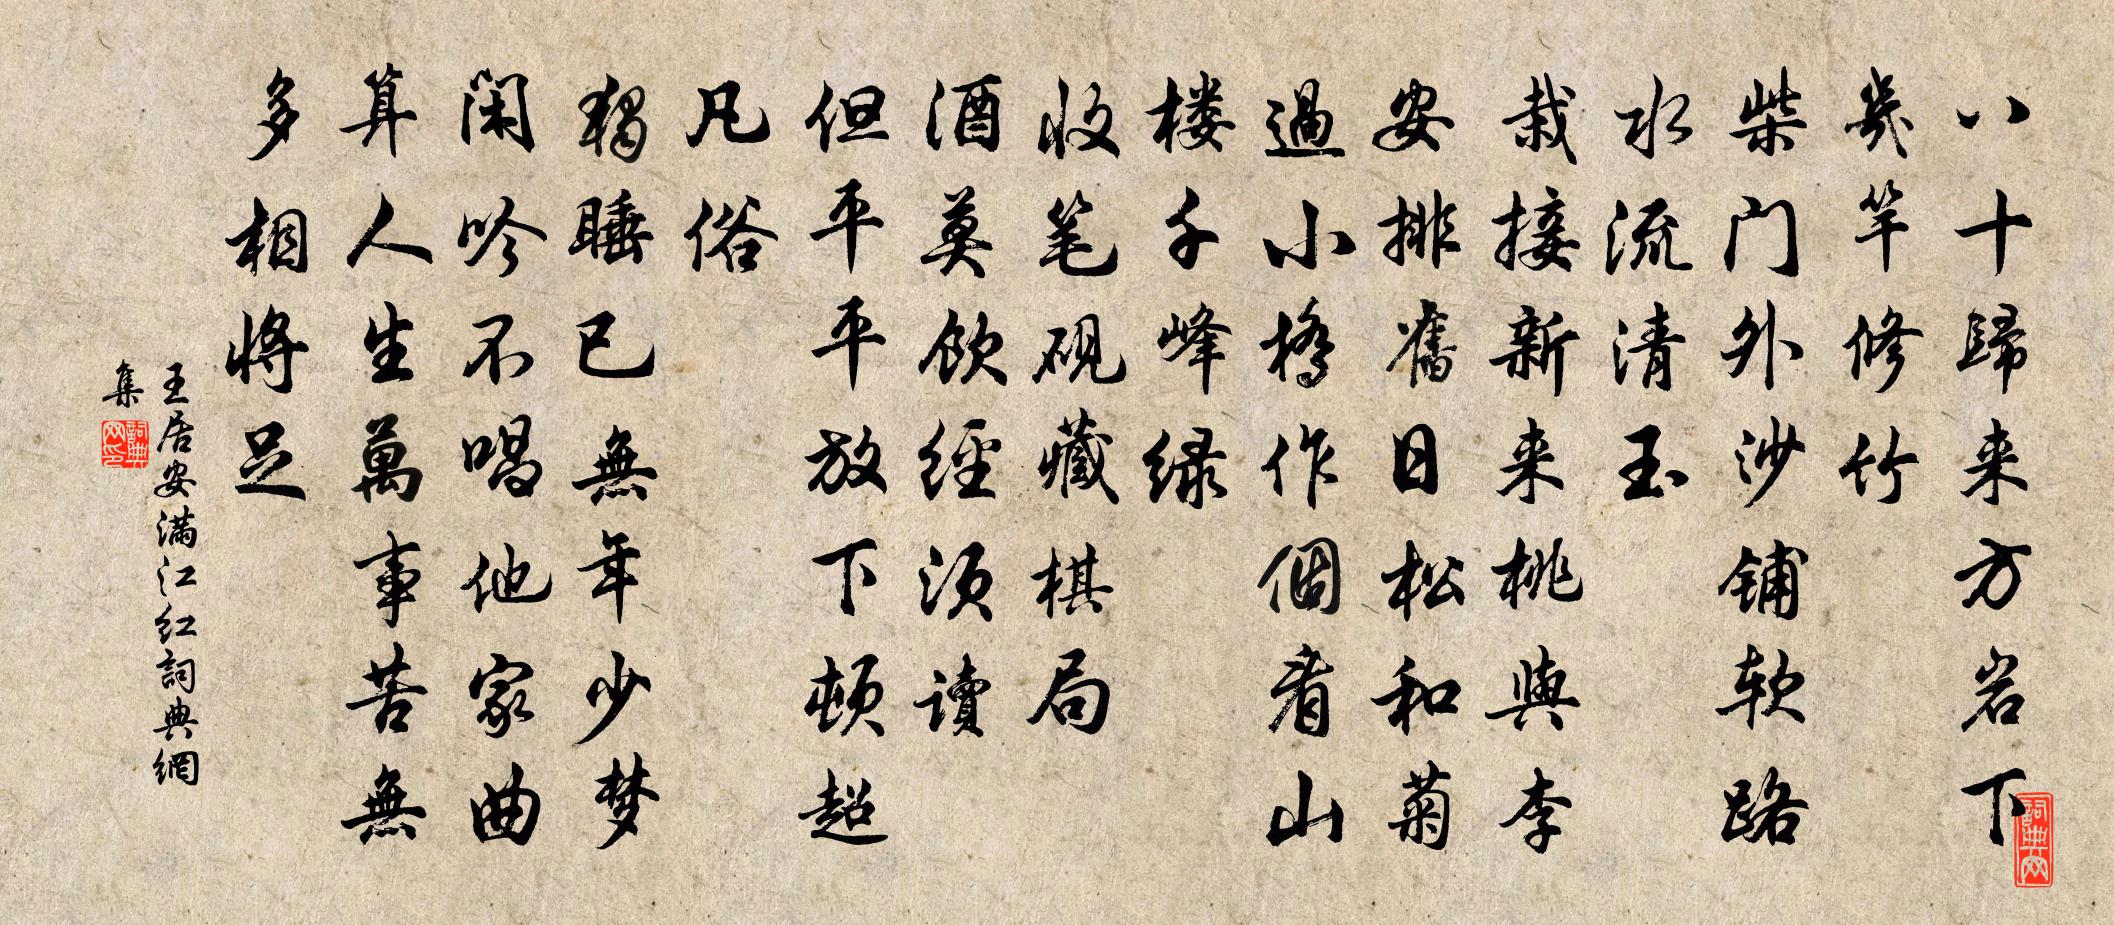 八十歸来方岩下
幾竿修竹
柴门外沙铺软路
水流清玉
栽接新来桃與李
安排舊日松和菊
過小橋作個看山
楼千峰绿
收笔砚藏棋局
酒莫飲經须读
但平平放下顿超
凡俗
獨睡已無年少梦
閑吟不唱他家曲
算人生萬事苦無
多相將足
王居安满江红詞典網
集
詞典网印
詞典网